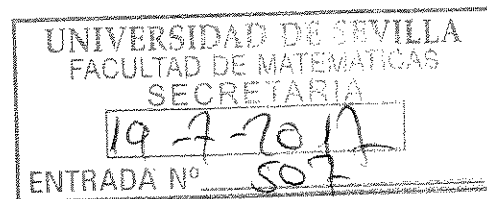 UNIVERSIDAD DE SEVILLA
FACULTAD DE MATEMATICAS
SECRETARIA
19-7-2017
ENTRADA Nº 507